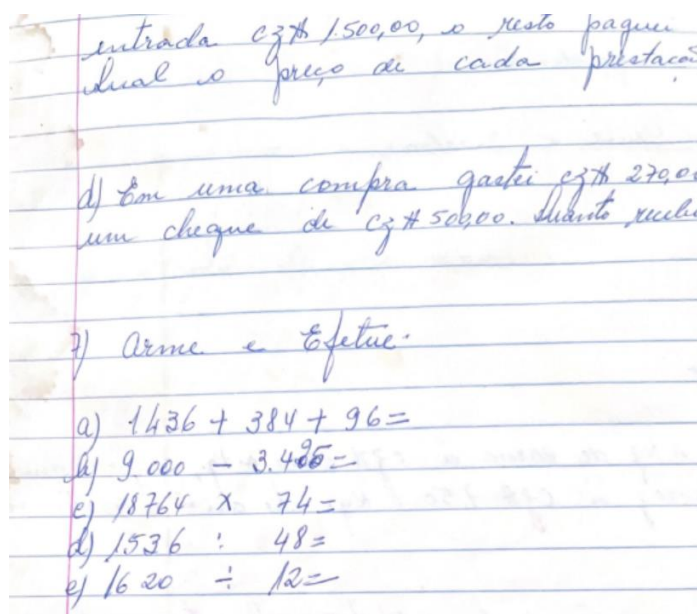 entrada Cz$ 1.500,00, o resto paguei
Qual o preço de cada prestação
d) Em uma compra gastei Cz$ 270,00
um cheque de Cz$ 500,00. Quanto recebi
7) Arme e Efetue.
a) 1436 + 384 + 96=
b) 9.000 - 3.495=
c) 18764 x 74=
d) 1536 : 48=
e) 1620 ÷ 12=